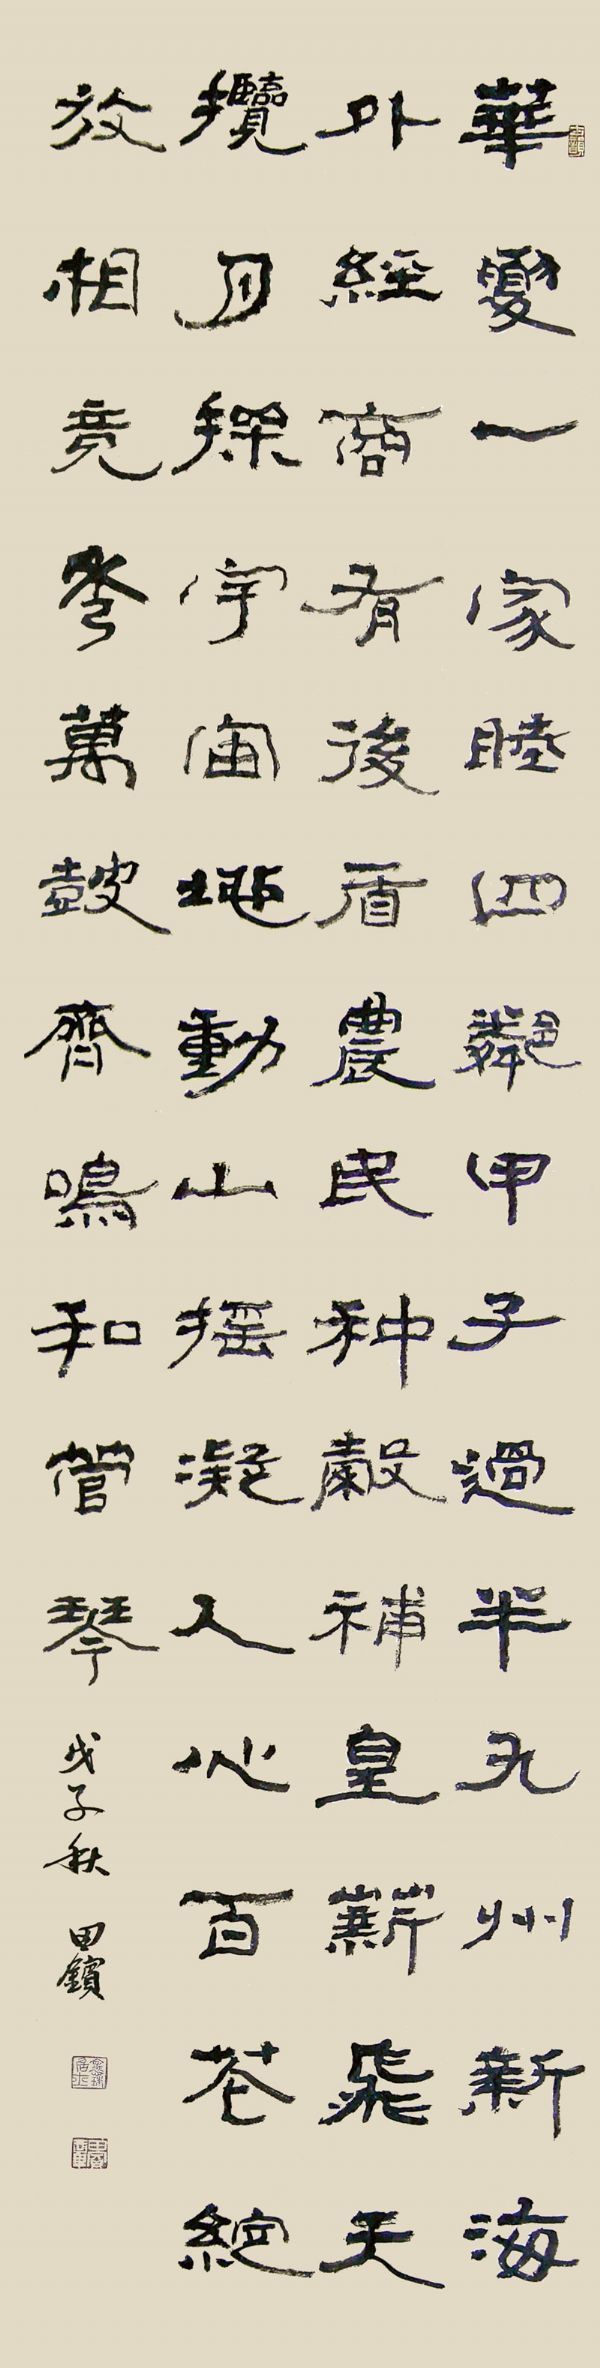 華夏一家睦四鄰甲子過半九州新海
外經商有後盾農民种穀補皇薪飛天
攬月探宇宙地動山摇凝人心百花綻
放相竞秀萬鼓齊鳴和管琴
戊子秋 田鑌